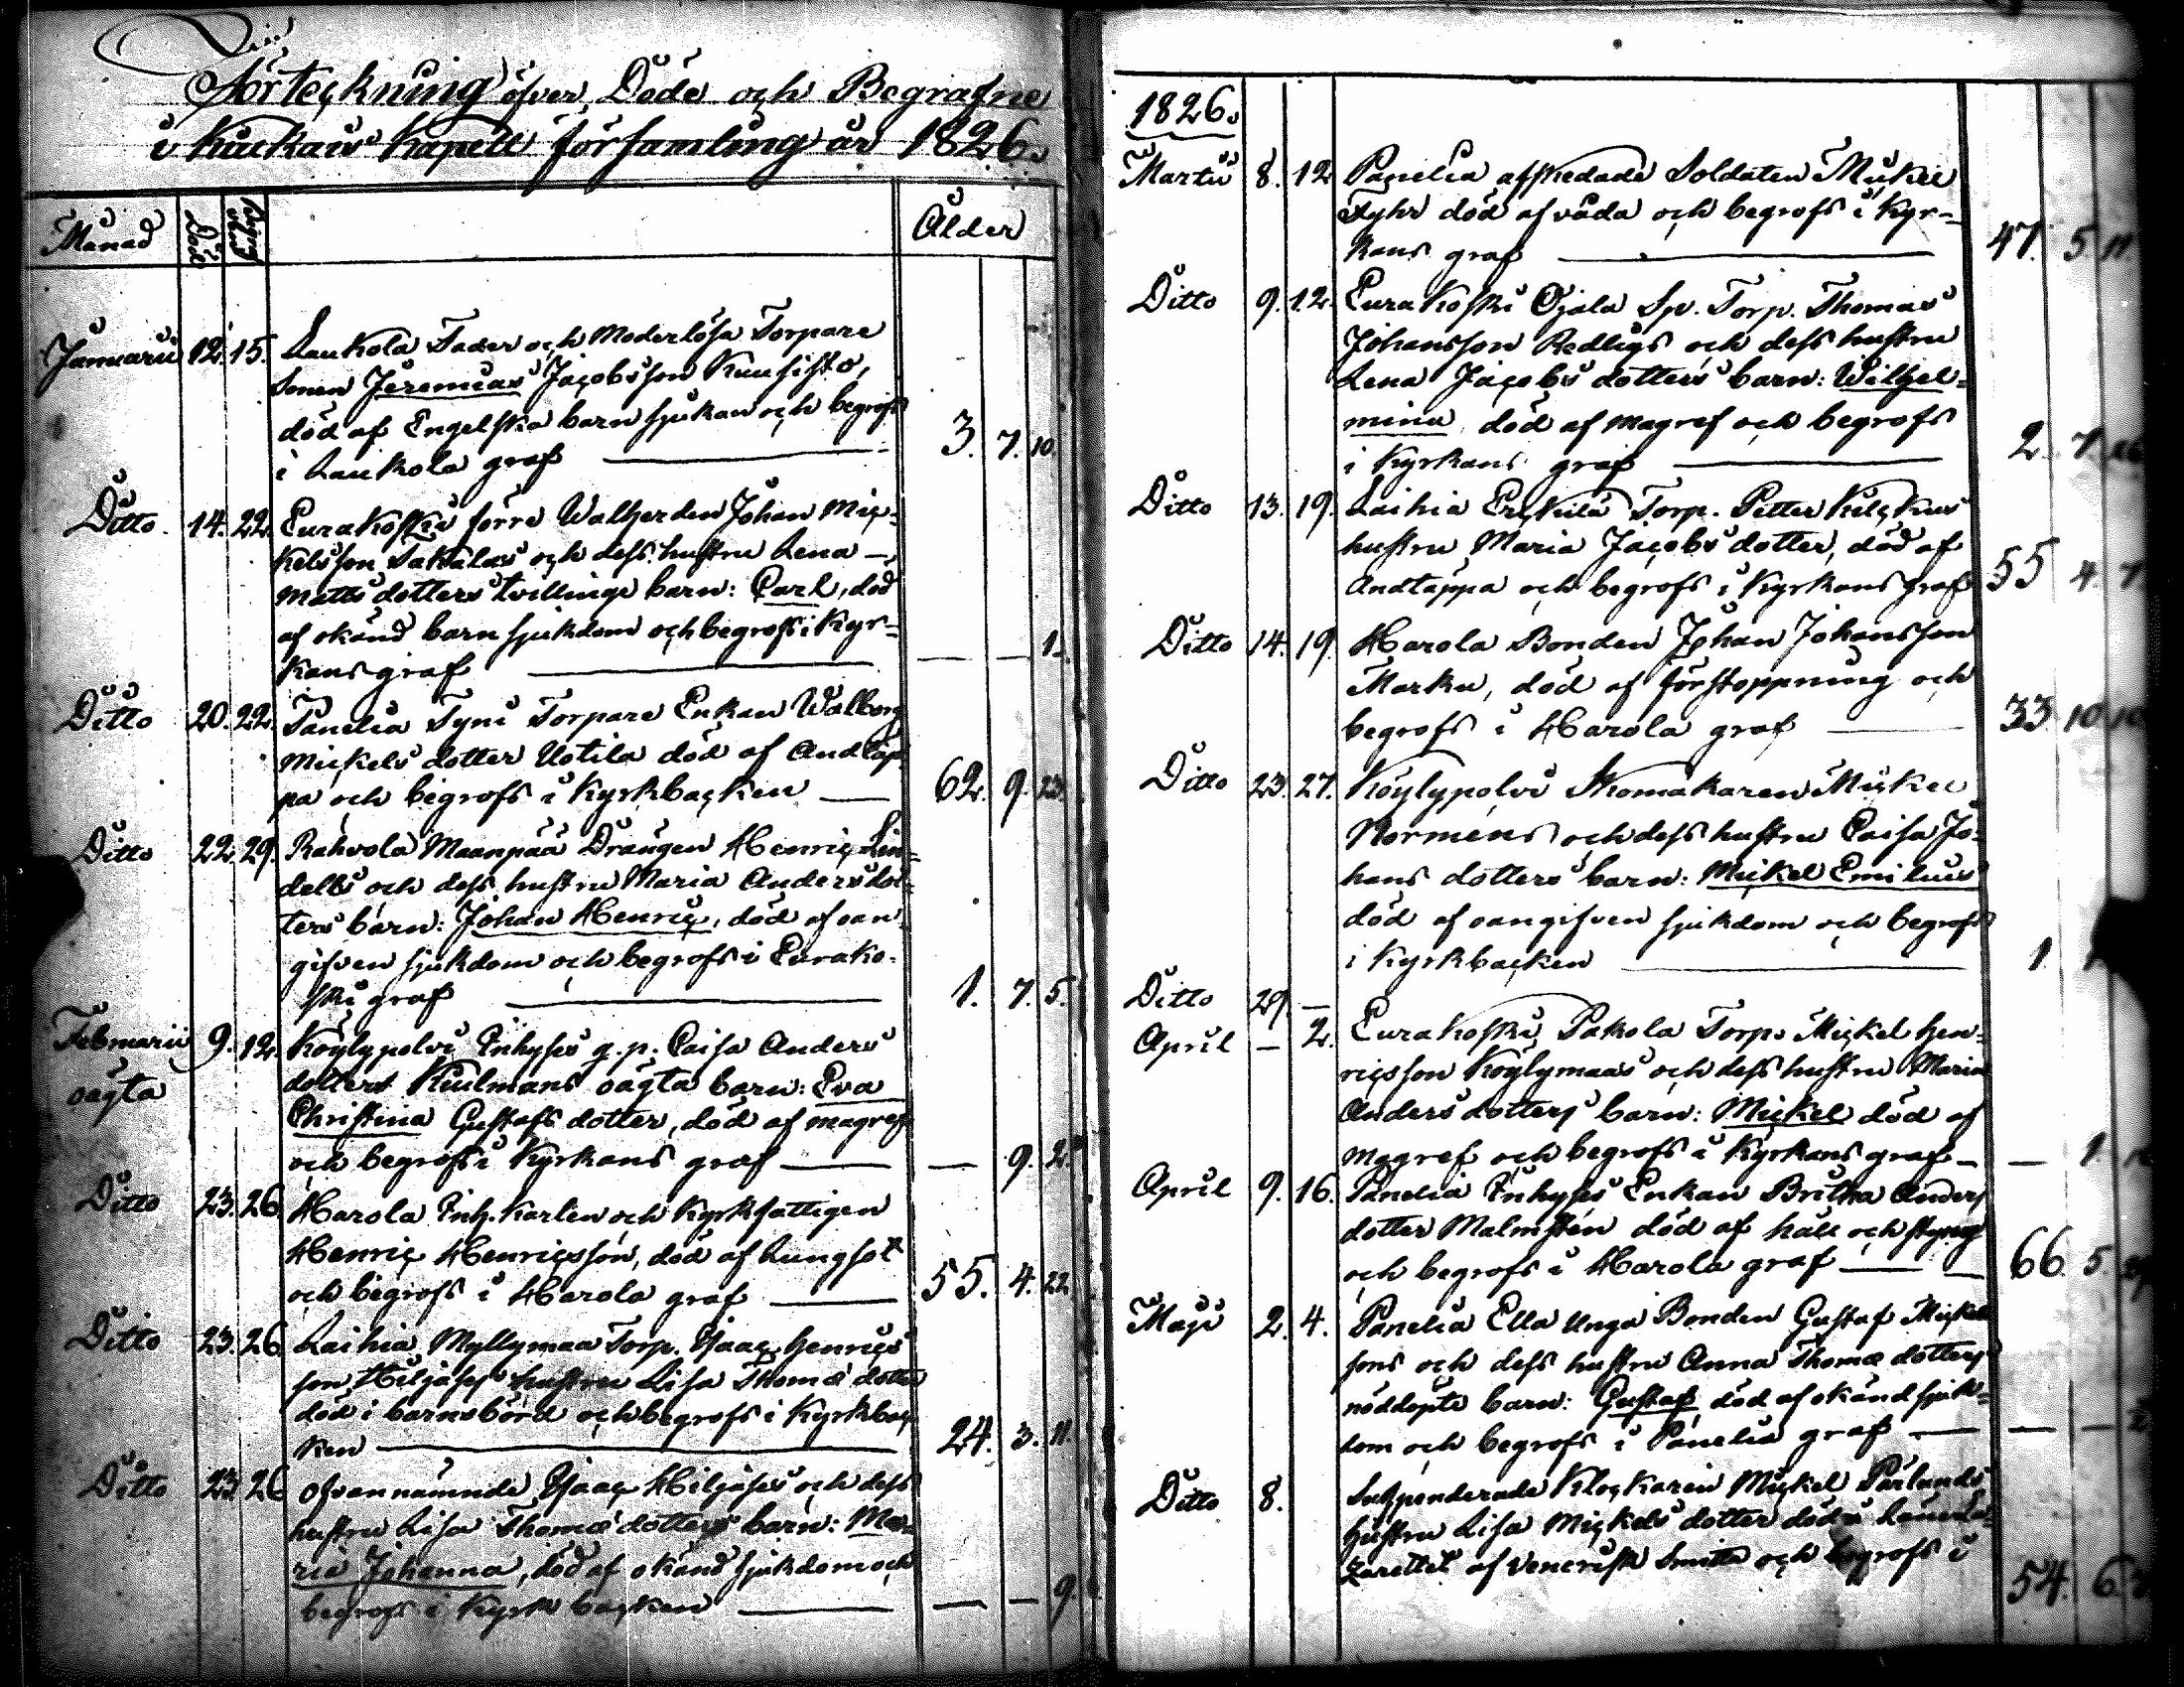 Förteckning öfver Döde och Begrafne
i Kiukais Kapell församling år 1826.
Månad Död Begraf Ålder
Januarii 12. 15. Laukola Fader och Moderlösa Torpare
Sonen Jeremias Jacobsson Kuusisto,
död af Engelska barn sjukan och begrofs
i Laukola graf 3. 7. 10.
Ditto 14. 22. Eurakoski förre Walherden Johan Mic-
kelsson Sakalas och dess hustru Lena
Matts dotters tvillinge barn: Carl, död
af okänd barn sjukdom och begrofs i Kyr-
kans graf — — 1.
Ditto 20. 22. Panelia Tyni Torpare Enkan Walborg
Mickels dotter Uotila död af Andtäp-
pa och begrofs i Kyrkbacken 62. 9. 23.
Ditto 22. 29. Rahvola Maanpää Drängen Henric Lin-
dells och dess hustru Maria Anders dot-
ters barn: Johan Henric, död af oan-
gifven sjukdom och begrofs i Eurako-
ski graf 1. 7. 5.
Februarii 9. 12. Köylypolvi Inhyses q.p. Caisa Anders
oägta dotters Kiulmans oägta barn: Eva
Christina Gustafs dotter, död af magref
och begrofs i Kyrkans graf — 9. 2.
Ditto 23. 26 Harola Inh. Karlen och Kyrkfattigen
Henric Henricsson, död af Lungsot
och begrofs i Harola graf 55. 4. 22
Ditto 23. 26 Laihia Myllymaa Torp. Isaac Henrics
son Hiljases hustru Lisa Thomæ dotter
död i barnsbörd och begrofs i Kyrkbac
ken 24. 3. 11.
Ditto 23 26 Ofvannämnde Isaac Hiljases och dess
hustru Lisa Thomæ dotters barn: Ma-
ria Johanna, död af okänd sjukdom och
begrofs i Kyrk backen — — 9.
1826.
Martii 8. 12 Panelia afskedade Soldaten Mickel
Fyhr död af våda och begrofs i Kyr-
kans graf 47. 5. 11.
Ditto 9. 12. Eurakoski Ojala Sp. Torp. Thomas
Johansson Redligs och dess hustru
Lena Jacobs dotters barn: Wilhel-
mina död af magref och begrofs
i Kyrkans graf 2. 7.
Ditto 13. 19. Laihia Erckilä Torp. Petter Kilckus
hustru Maria Jacobs dotter, död af
Andtäppa och begrofs i Kyrkans graf 55 4. 7
Ditto 14. 19. Harola Bonden Johan Johansson
Marku, död af förstoppning och
begrofs i Harola graf 33. 10 10
Ditto 23. 27. Köylypolvi Skomakaren Mickel
Norméns och dess hustru Caisa Jo-
hans dotters barn: Mickel Emilius
död af oangifven sjukdom och begrofs
i Kyrkbacken 1.
Ditto 29. —
April — 2. Eurakoski Pakola Torp. Mickel Hen-
ricsson Köylymaas och dess hustru Maria
Anders dotters barn: Mickel död af
magref och begrofs i Kyrkans graf — 1.
April 9. 16. Panelia Inhyses Enkan Britha Anders
dotter Malmstén död af håll och styng
och begrofs i Harola graf 66. 5.
Maji 2. 4. Panelia Ella Unga Bonden Gustaf Mickels
sons och dess hustru Anna Thomæ dotters
nöddöpte barn: Gustaf död af okänd sjuk-
dom och begrofs i Panelia graf — —
Ditto 8. Suspenderade Klockaren Mickel Pärlunds
hustru Lisa Mickels dotter död i
zarettet af Venerisk Smitta och begrofs i 54. 6.